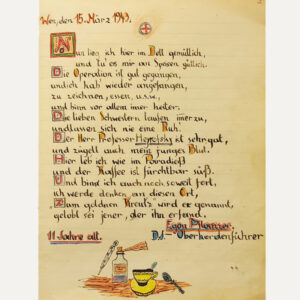 Wien, den 15. März 1943.
Nun lieg ich hier im Bett gemütlich,
und tu' es mir an Speisen gütlich.
Die Operation ist gut gegangen,
und ich hab' wieder angefangen,
zu zeichnen, essen, u.s.w.,
und bins vor allem immer heiter.
Die lieben Schwestern laufen immer zu,
und lassen sich nie eine Ruh.
Der Herr Professor ist sehr gut,
und zügelt auch mein junges Blut.
Hier leb ich wie im Paradieß
und der Kaffee ist fürchtbar süß.
Und bind ich auch noch soweit fort,
ich werde denken an diesen Ort,
Zum goldnen Kreutz wird er genannt,
gelobt sei jener, der ihn erfand.
Egon
11 Jahre alt. D.J.-Oberhordenführer